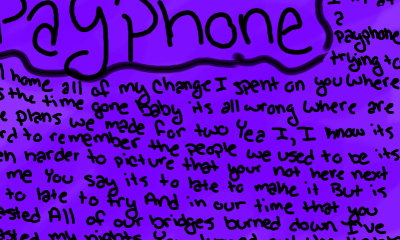 PayPhone
I'm at
?
Payphone
trying to
home all of my change I spent on you where
the time gone Baby its all wrong where are
e plans we made for two Yea I, I know its
rd to remember the people we used to be its
en harder to picture that your not here next
me You say its to late to make it But is
to late to try And in our time that you
asted All of our bridges burned down I've
asted my nights